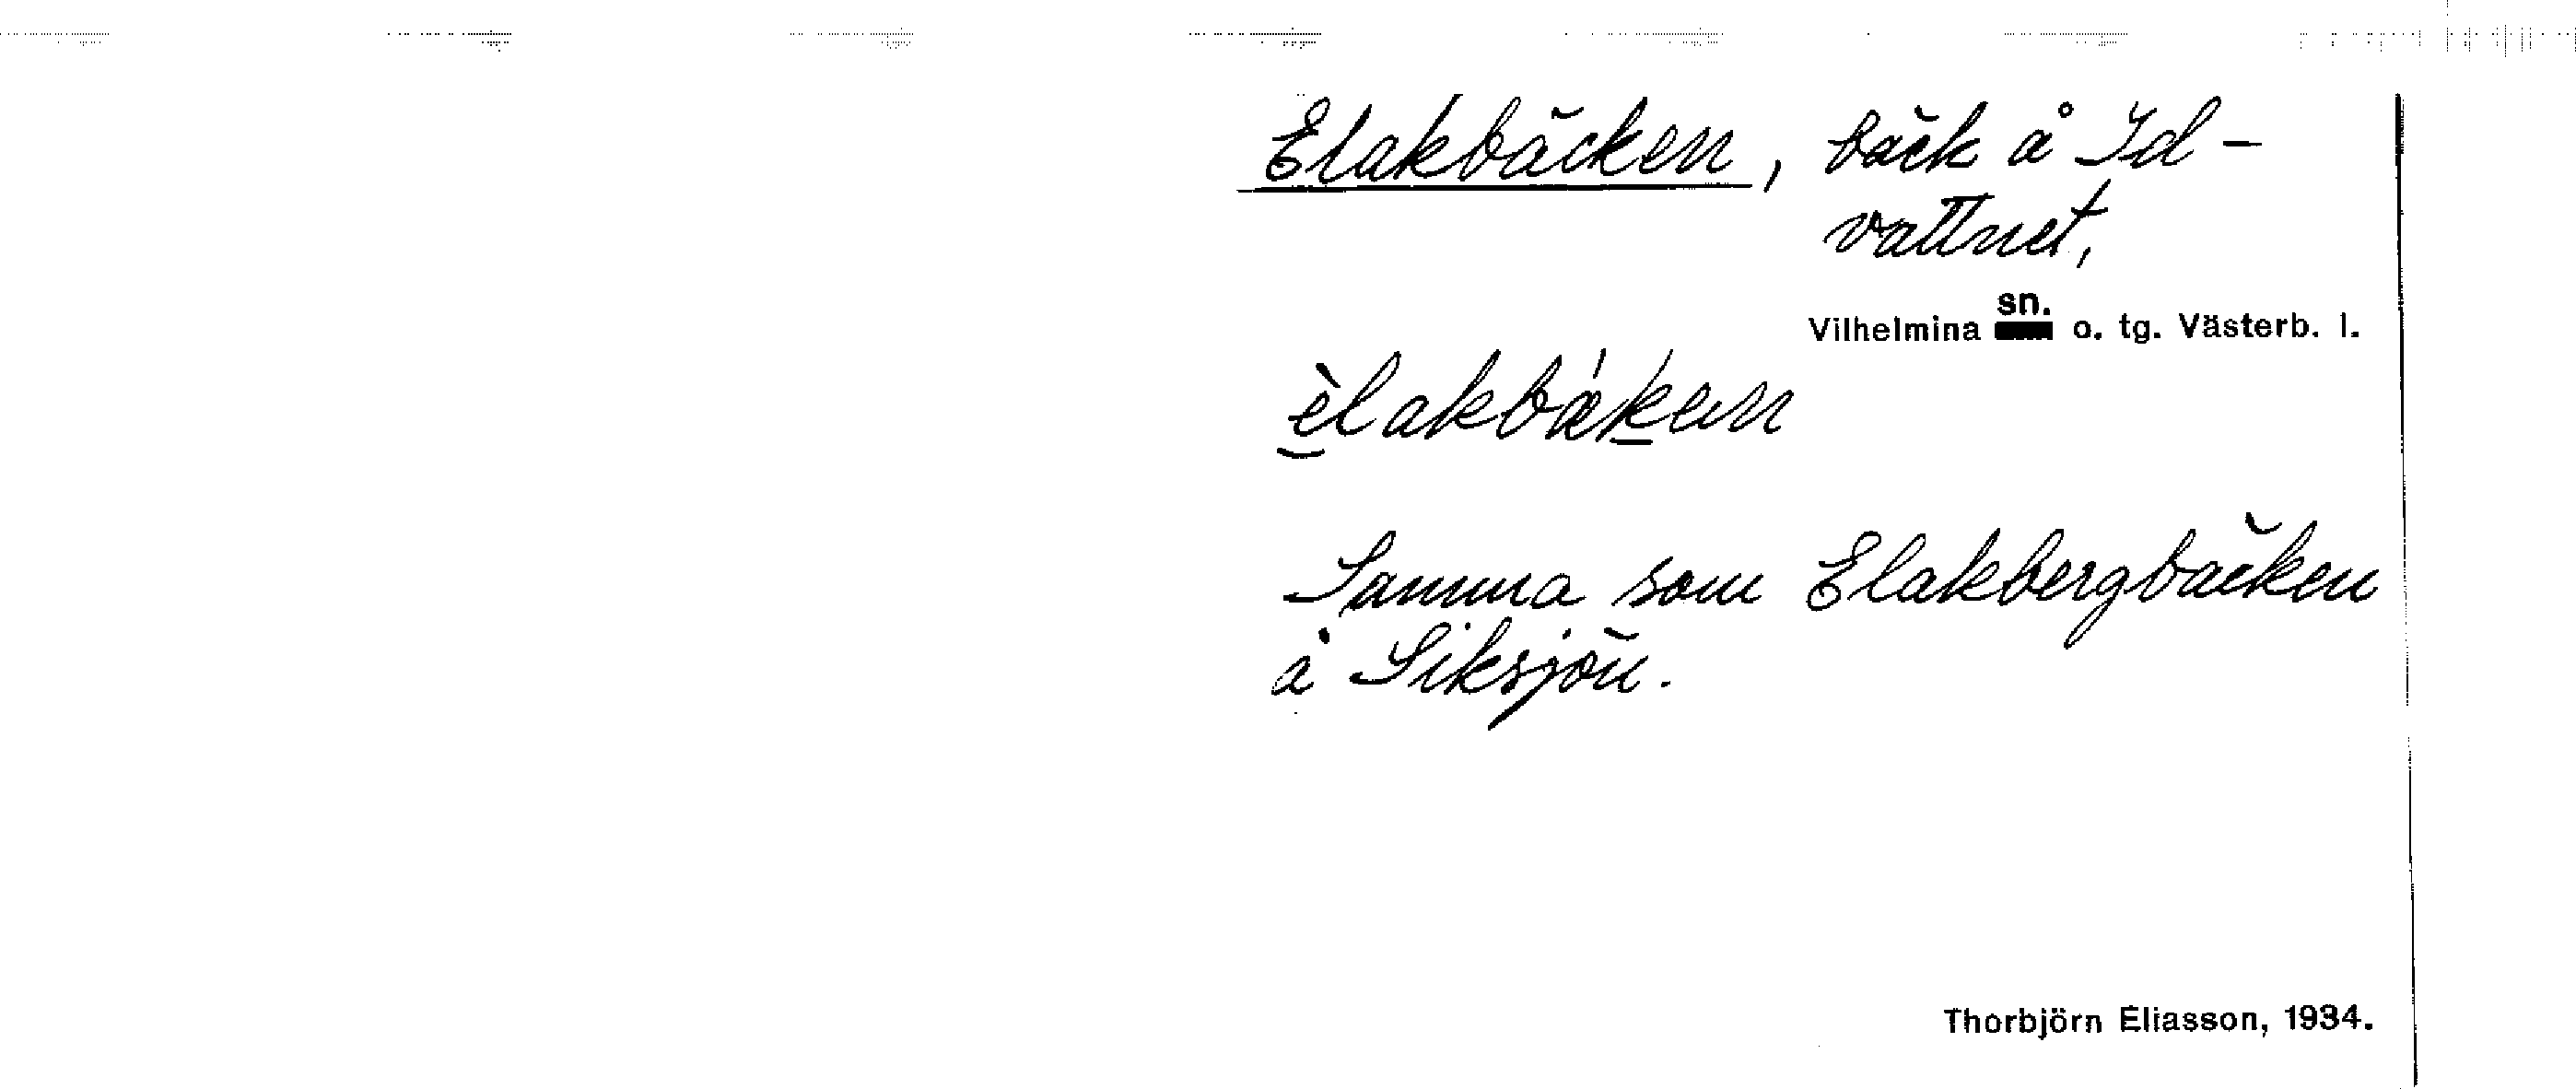 Elakbäcken, bäck å Id-
vattnet,
Vilhelmina sn. o. tg. Västerb. l.
èlakbä́ken
Samma som Elakbergbäcken
å Siksjön.
Thorbjörn Eliasson, 1934.